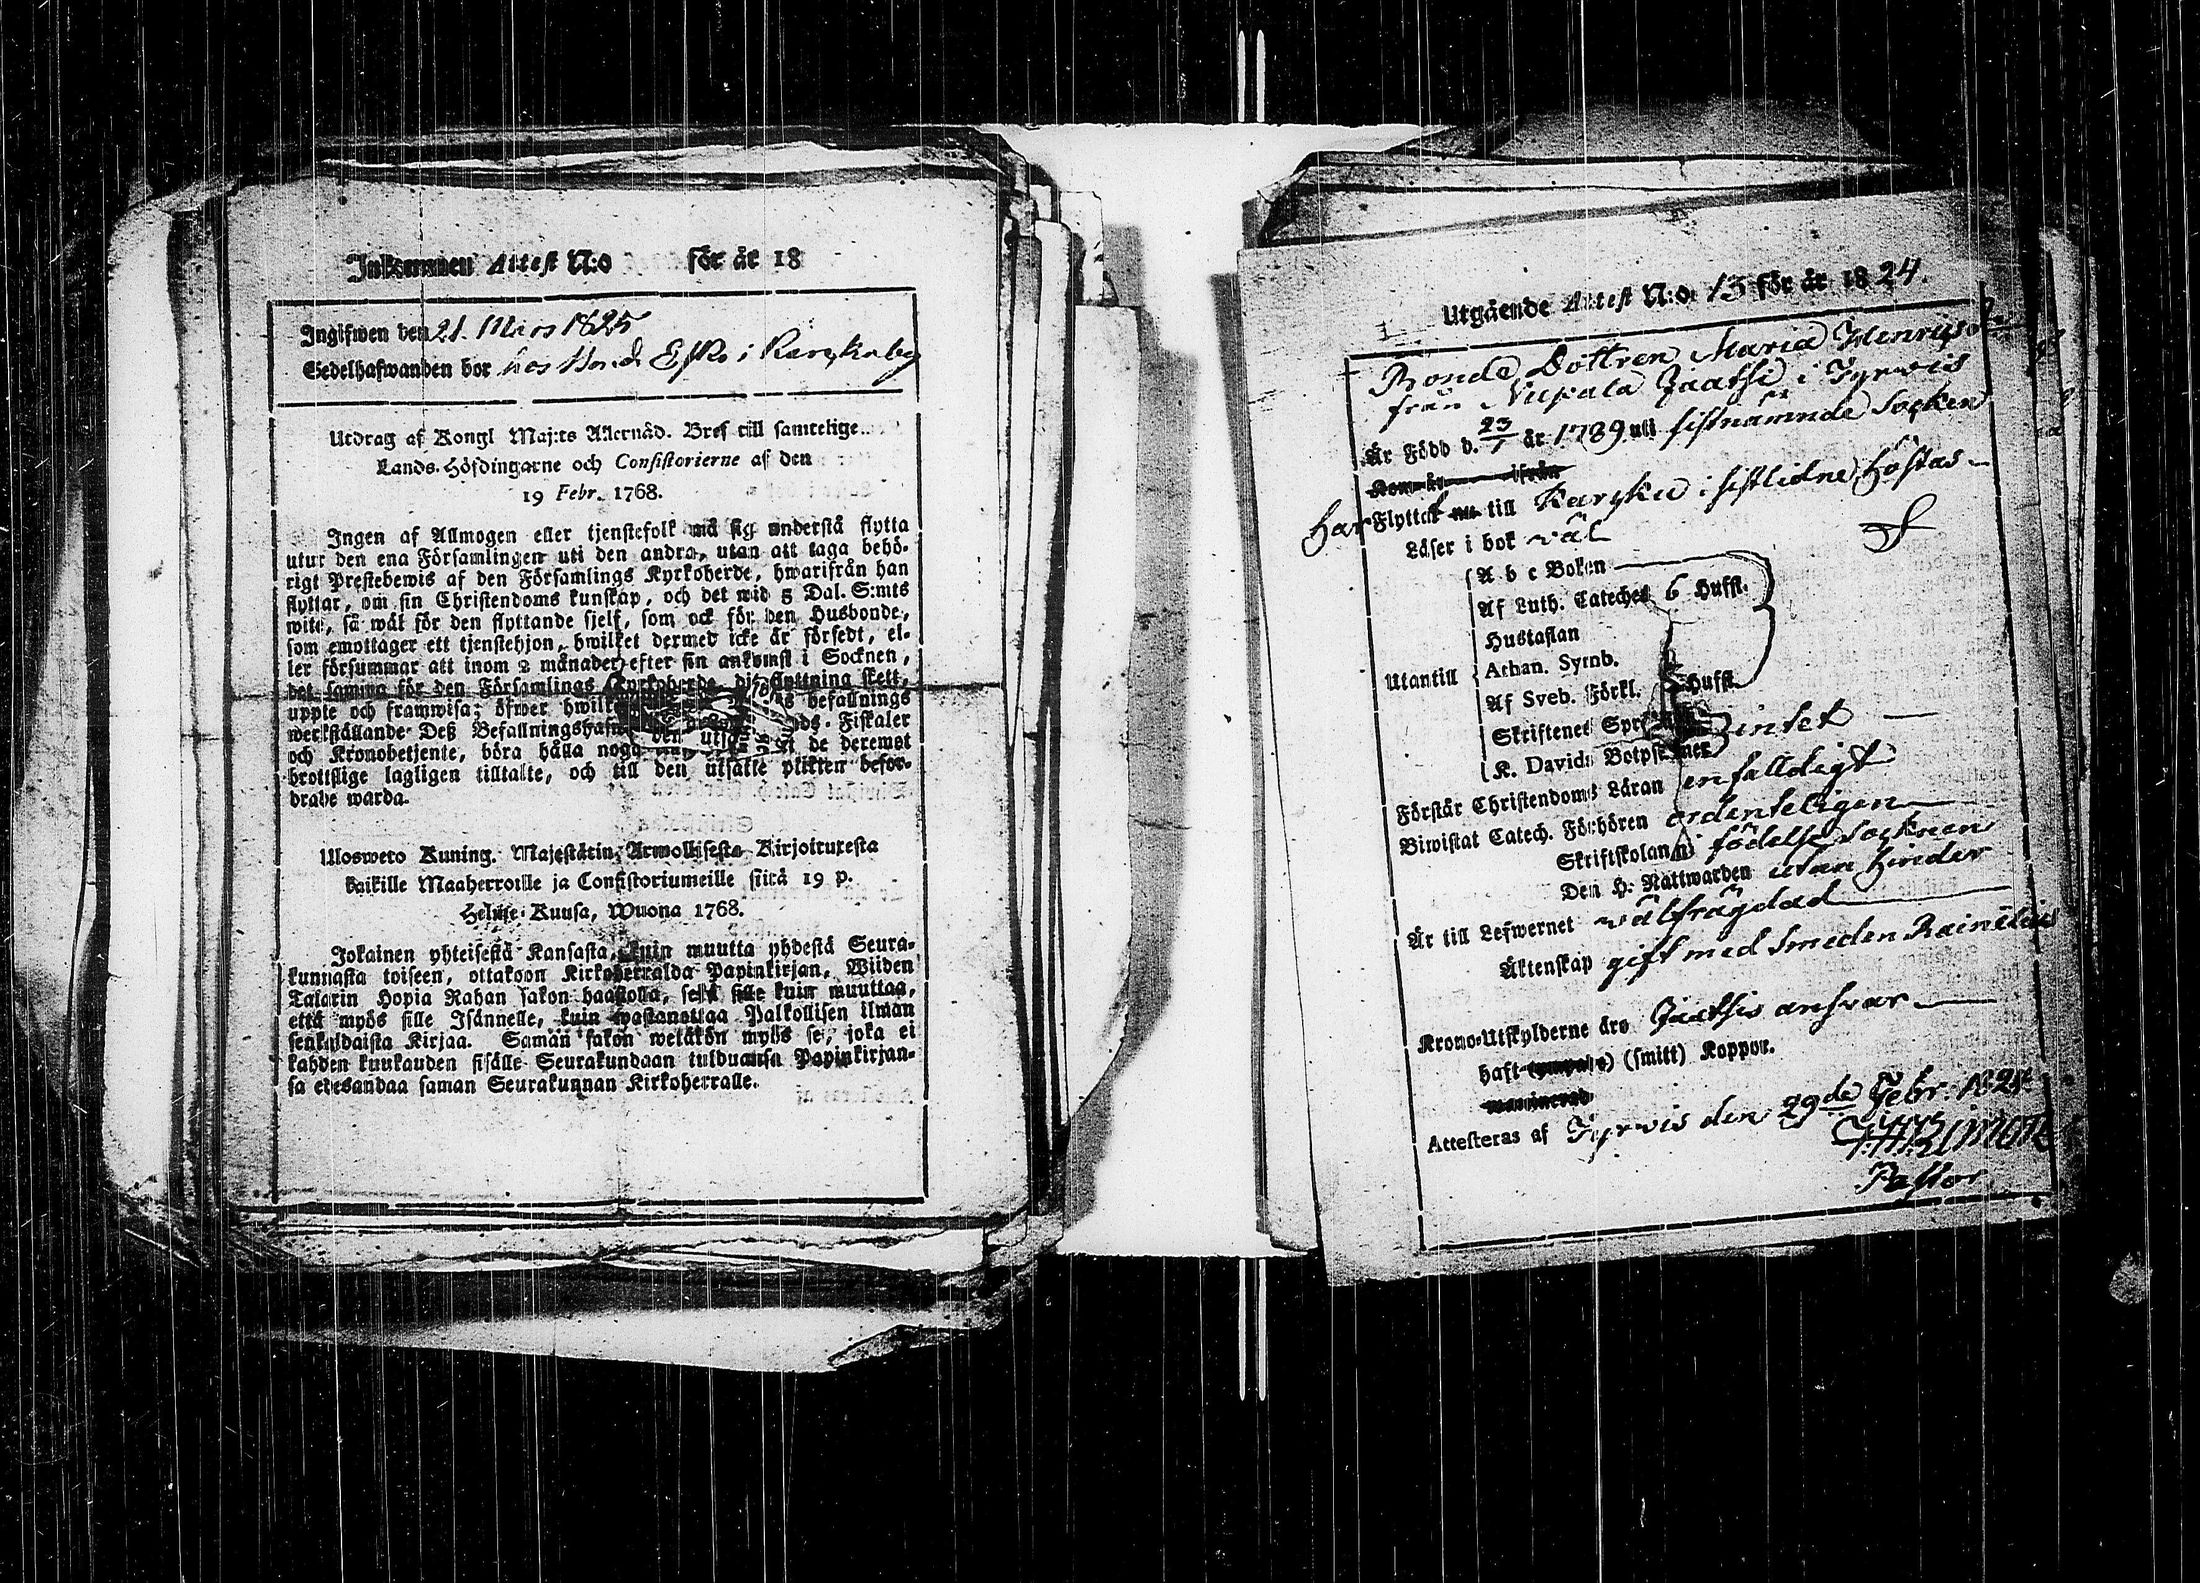 Inkommen Attest N:o för år 18
Ingifwen den 21. Mars 1825
Sedelhafwanden bor hos Bond. Esko i Karkku by
Utdrag af Kongl Maj:ts Allernåd. Bref till samtelige
Lands-Höfdingarne och Consistorierne af den
19 Febr. 1768.
Ingen af Allmogen eller tjenstefolk må sig understå flytta
utur den ena Församlingen uti den andra, utan att taga behö-
rigt Prestebewis af den Församlings Kyrkoherde, hwarifrån han
flyttar, om sin Christendoms kunskap, och det wid 5 Dal. S:mts
wite, så wäl för den flyttande sjelf, som ock för den Husbonde,
som emottager ett tjenstehjon, hwilket dermed icke är försedt, el-
ler försummar att inom 2 månader efter sin ankomst i Socknen,
det samma för den Församlings Kyrkoherde, dit flyttning skett,
uppte och framwisa; öfwer hwilket befallnings
werkställande Deß Befallningshafw Fiskaler
och Kronobetjente, böra hålla noga de deremot
brottslige lagligen tilltalte, och till den utsatte plikten befor-
drade warda.
Uloswето Kuning. Majestätin Armollisesta Kirjoituxesta
kaikille Maaherroille ja Consistoriumeille siitä 19 p.
Helme-Kuusa, Wuona 1768.
Jokainen yhteisestä Kansasta, kuin muutta yhdestä Seura-
kunnasta toiseen, ottakoon Kirkoherralda Papinkirjan, Wiiden
Talarin Hopia Rahan sakon haastolla, sekä sille kuin muuttaa,
että myös sille Isännelle, kuin wastanottaa Palkollisen ilman
senkaldaista Kirjaa. Samän sakon wetäkön myös se, joka ei
kahden kuukauden sisälle Seurakundaan tulduansa Papinkirjan-
sa edesandaa saman Seurakunnan Kirkoherralle.
Utgående Attest N:o 13 för år 1824.
Bonde Dottren Maria Henrics dr
från Nupala Jaatsi i Tyrwis
Är Född d. 23/1 år 1789 uti sistnämnde Socken
Kom år ifrån
Har Flyttat nu till Karkku i sistlidne höstas
Läser i bok wäl
Utantill
A b c Boken
Af Luth. Cateches 6 Hufst.
Hustaflan
Athan. Symb.
Af Sveb. Förkl. Hufst.
Skriftenes Språk
K. Davids Botpsalmer intet
Förstår Christendoms Läran enfalldigt
Biwistat Catech. Förhören ordenteligen
Skriftskolan i födelse socknen
Den H. Nattwarden utan hinder
Är till Lefwernet wälfrägdad
Äktenskap gift med Smeden Rainelius
Krono-Utskylderne äro Jaatsis answar
Haft (smitt) Koppor.
Attesteras af Tyrwis den 29de Febr. 1824
Pastor